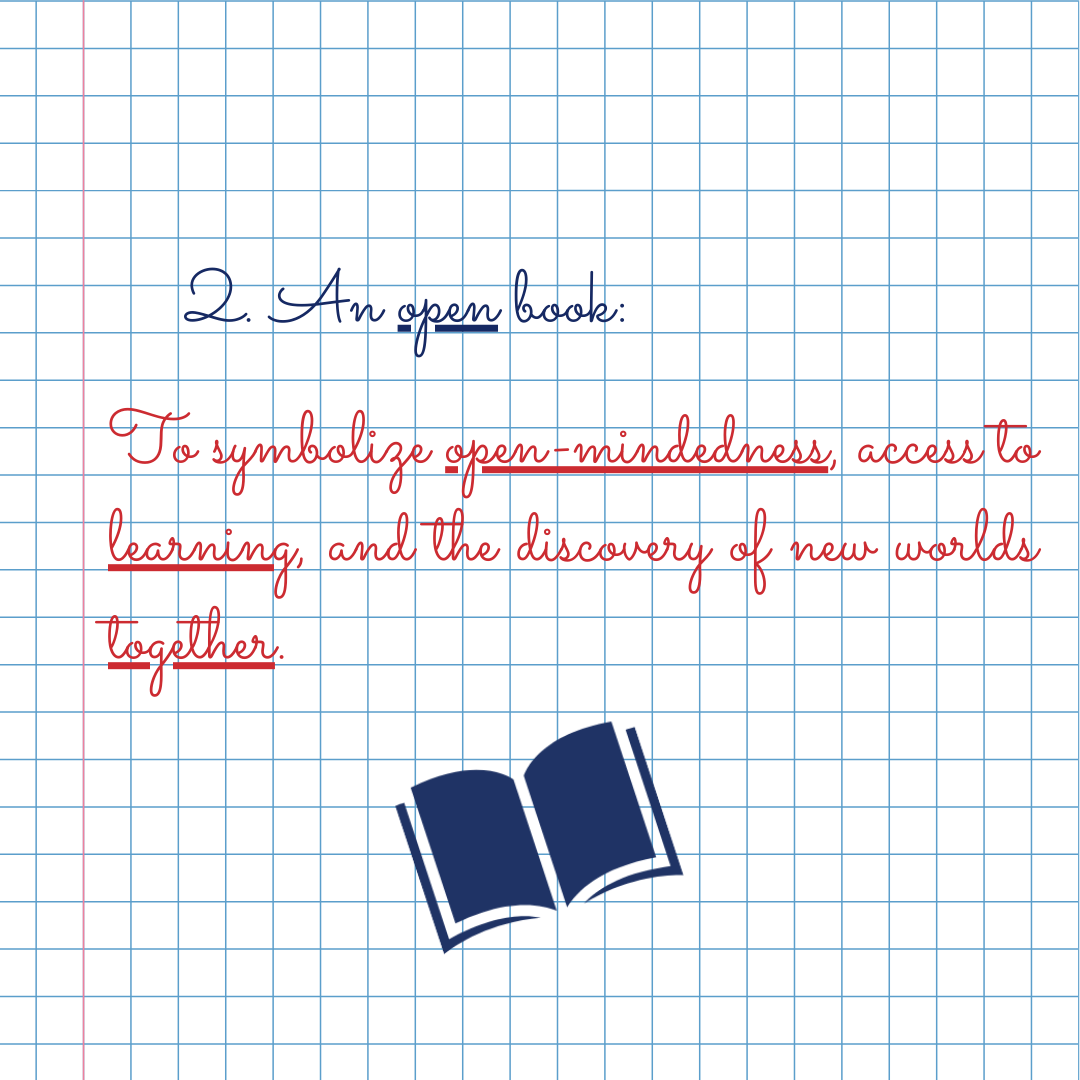 2. An open book:
To symbolize open-mindedness, access to
learning, and the discovery of new worlds
together.